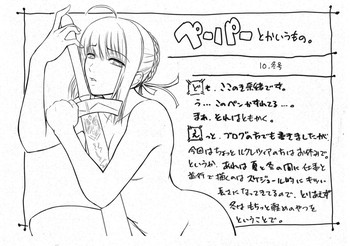 ペーパーとかいうもの。
10.冬号
ども、ここのき奈緒です。
う…このペンがすれてる…。
まぁ、それはともかく。
えっと、ブログの方でも書きましたが
今回はちょっとルクレツィアの方はお休みで。
というか、あれは夏と冬の間に仕事と
並行で描くのはスケジュール的にキツい
長さになってきてるので、とりあえず
冬はもちっと軽めのやつを
ということで。